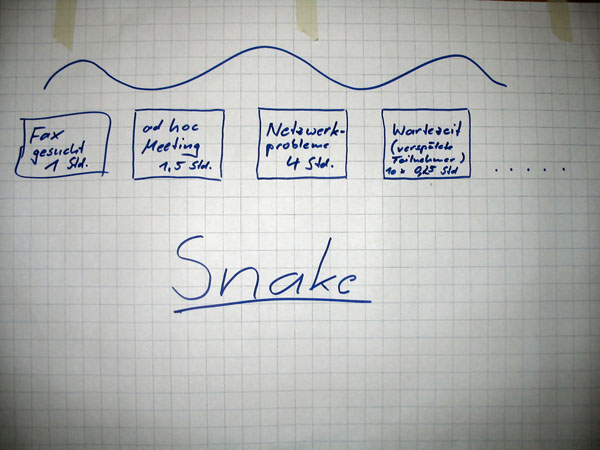 Fax
gesucht
1 Std.
ad hoc
Meeting
1,5 Std.
Netzwerk-
probleme
4 Std.
Wartezeit
(verspätete
Teilnehmer)
10 x 0,25 Std
.....
Snake